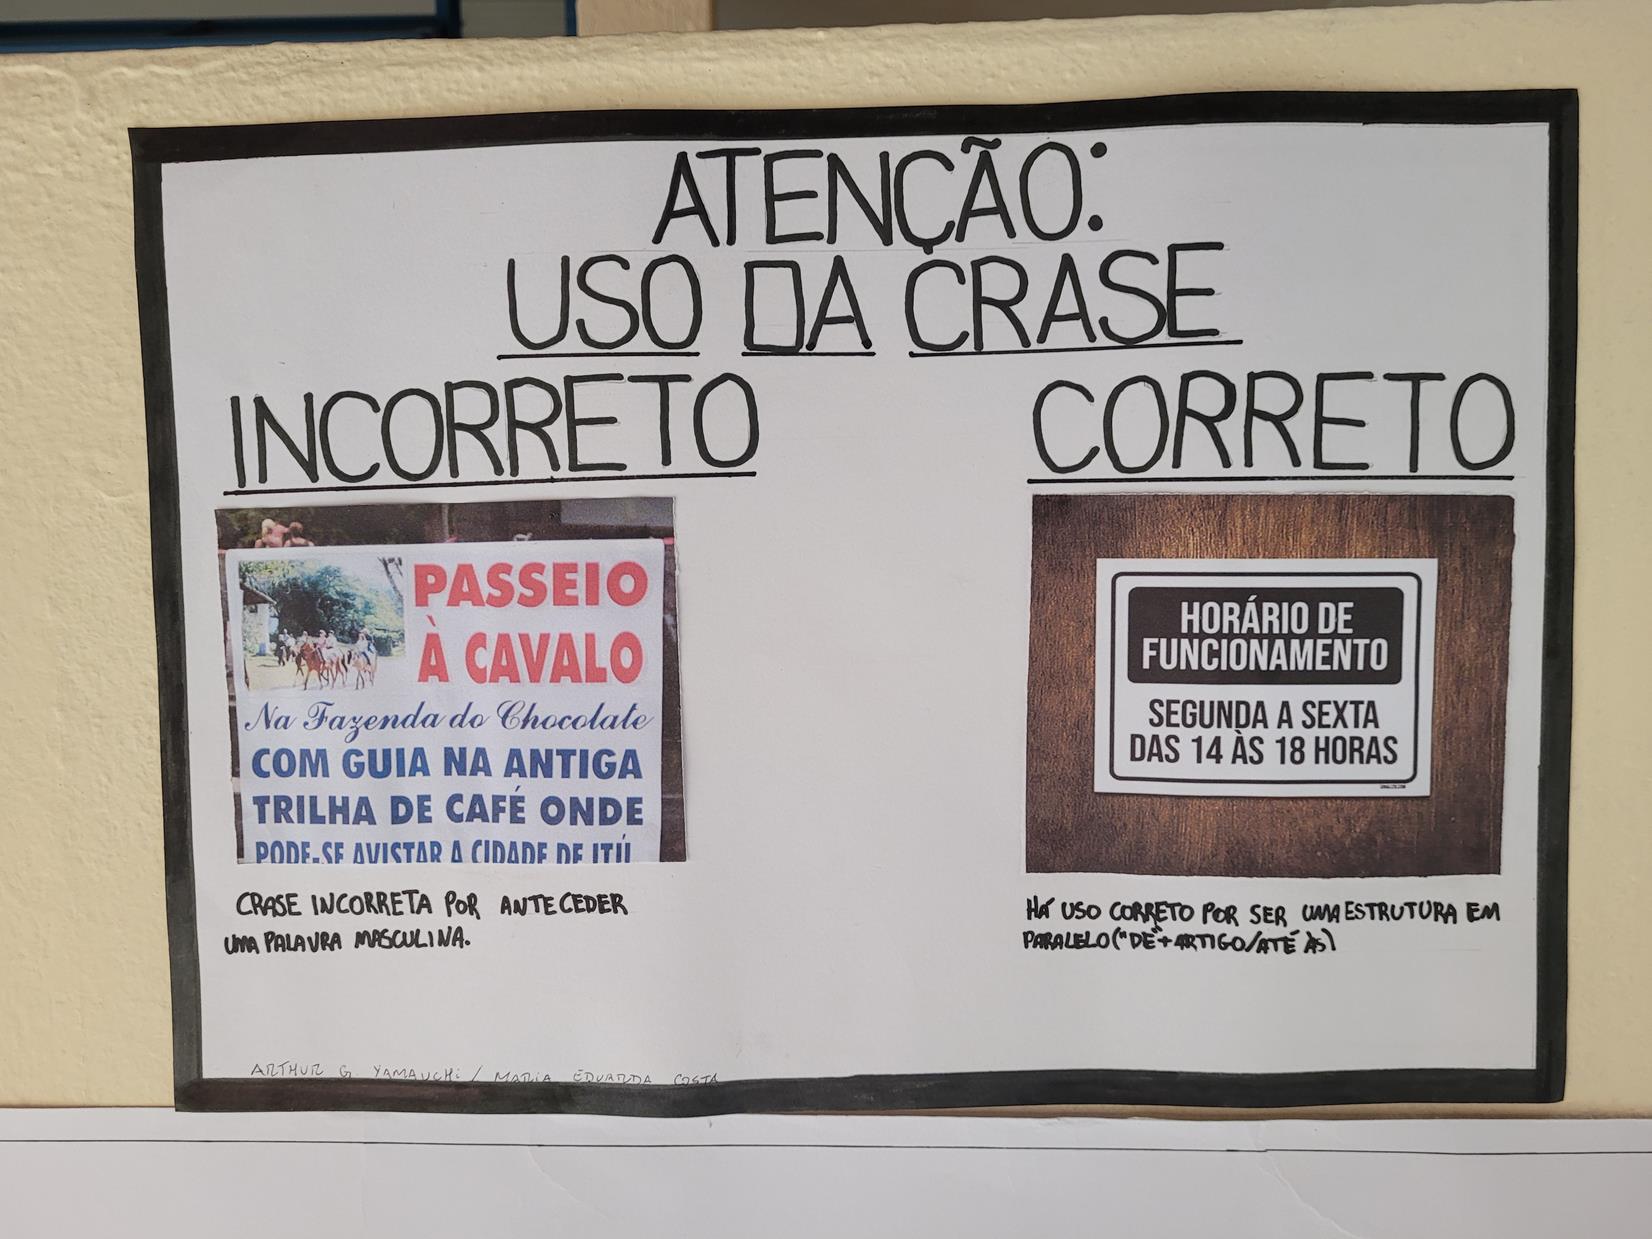 ATENÇÃO:
USO DA CRASE
INCORRETO
PASSEIO
À CAVALO
Na Fazenda do Chocolate
COM GUIA NA ANTIGA
TRILHA DE CAFÉ ONDE
PODE-SE AVISTAR A CIDADE DE ITÚ
CRASE INCORRETA POR ANTECEDER
UMA PALAVRA MASCULINA.
CORRETO
HORÁRIO DE
FUNCIONAMENTO
SEGUNDA A SEXTA
DAS 14 ÀS 18 HORAS
HÁ USO CORRETO POR SER UMA ESTRUTURA EM
PARALELO ("DE"+ ARTIGO/ATÉ ÀS)
ARTHUR G. YAMAUCHI / MARIA EDUARDA COSTA